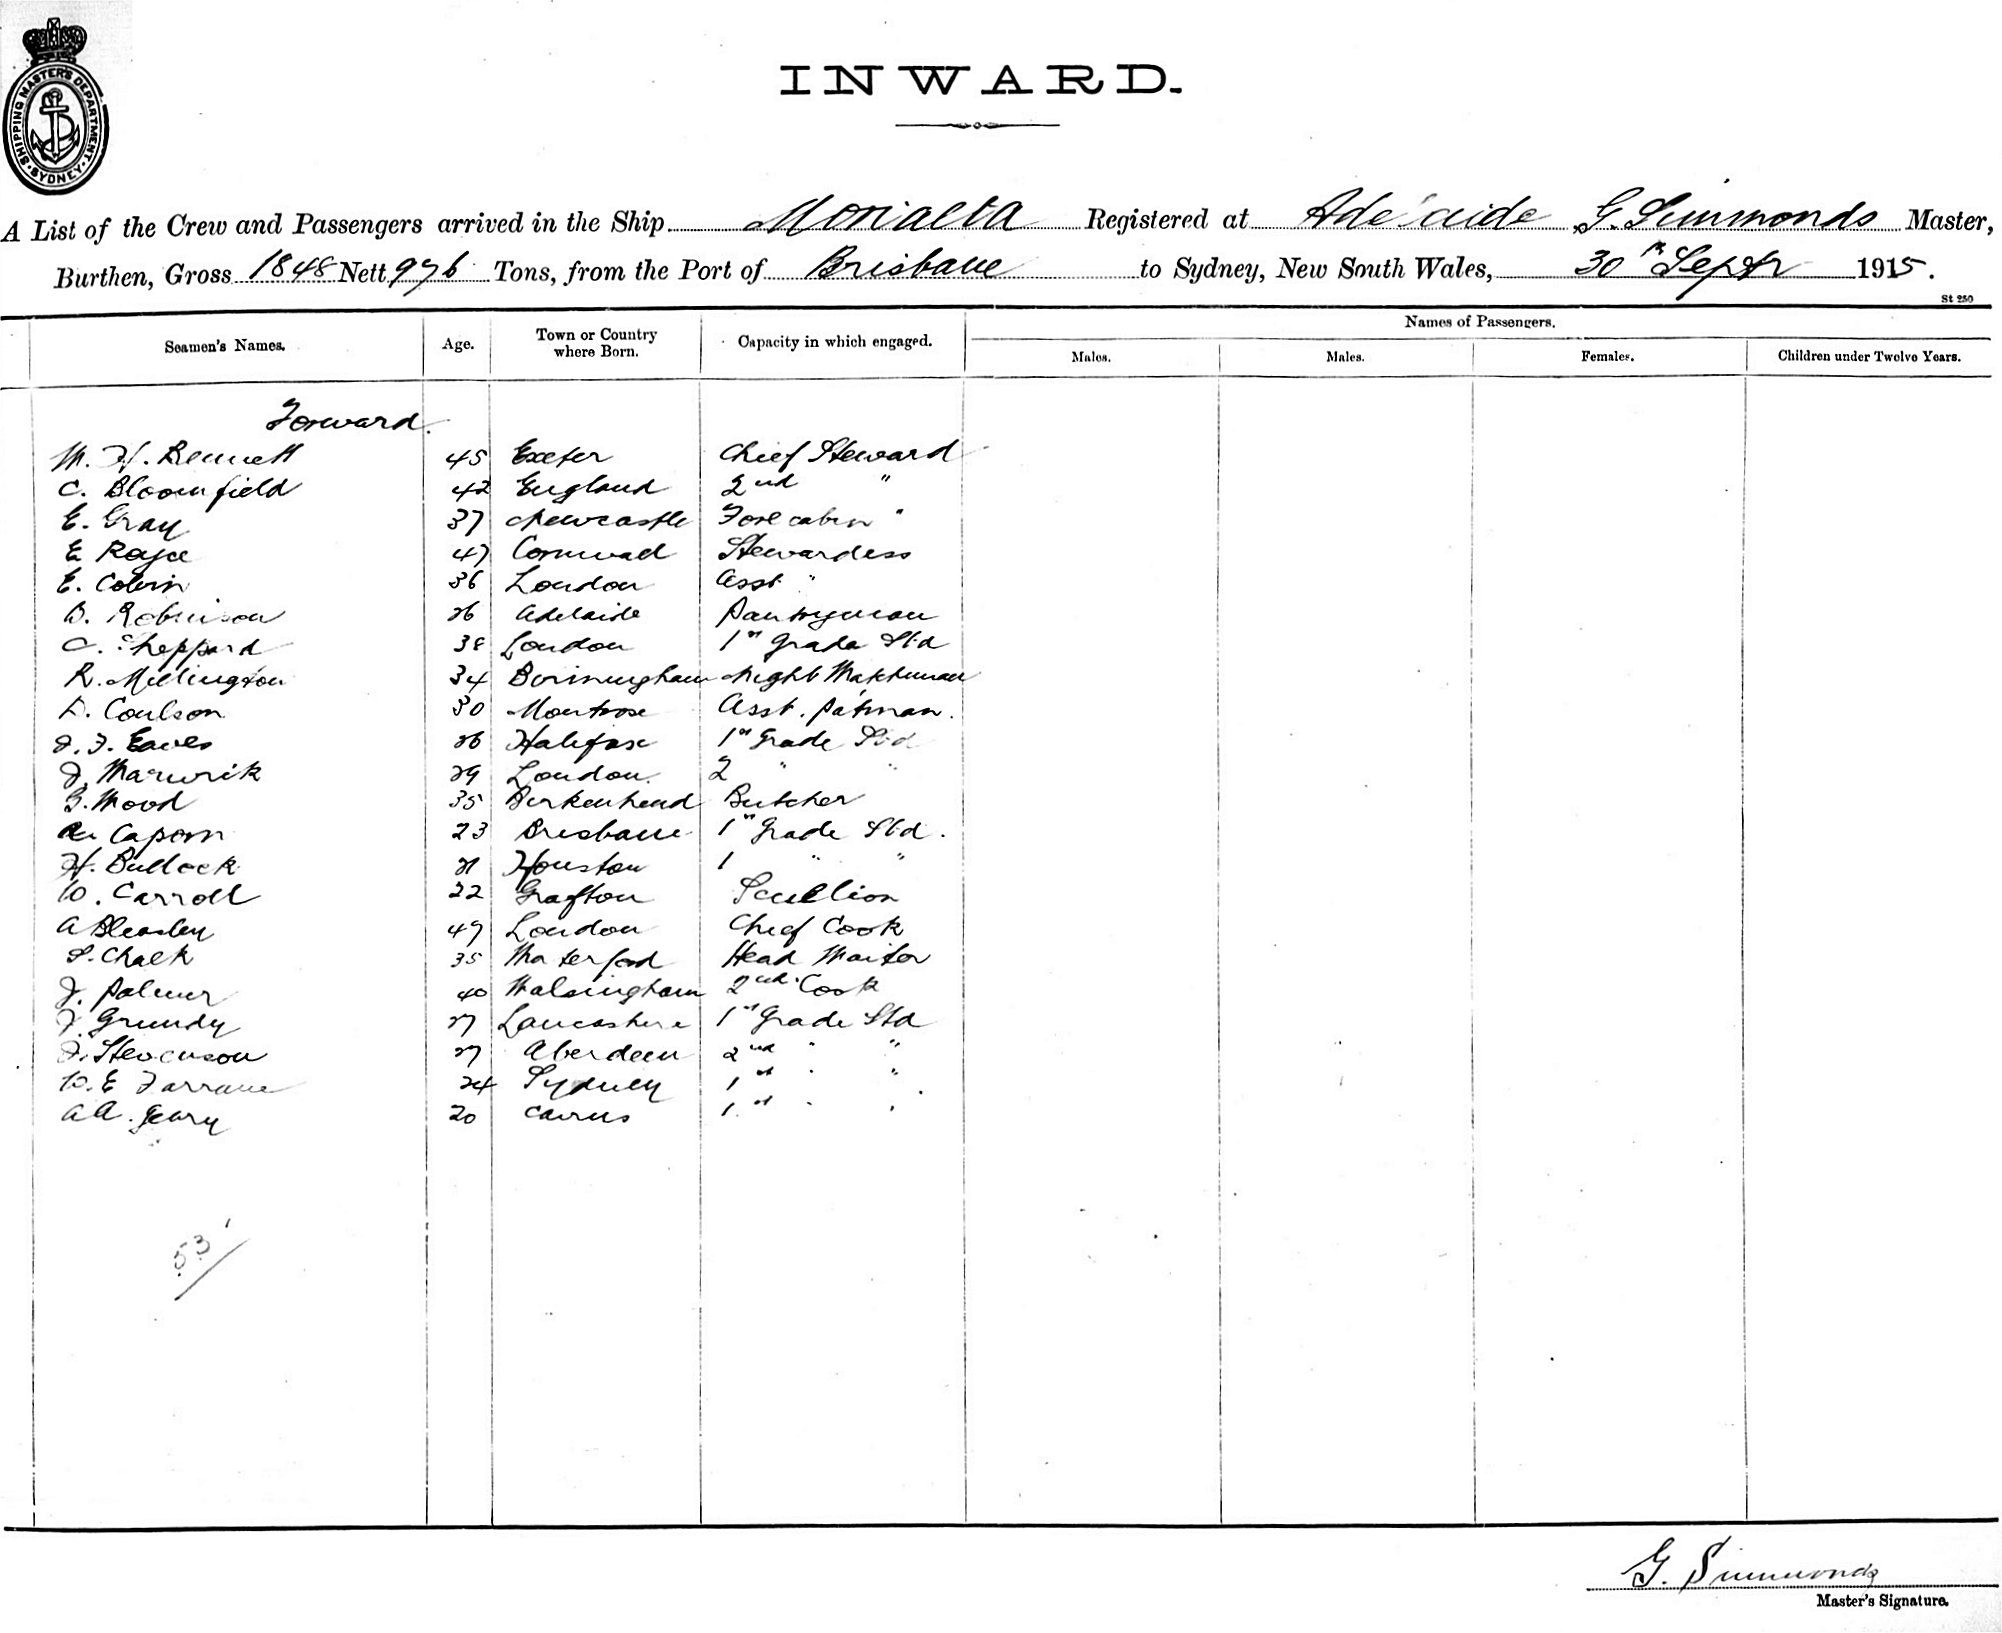 SHIPPING MASTER'S DEPARTMENT. SYDNEY
INWARD.
A List of the Crew and Passengers arrived in the Ship Morialta Registered at Adelaide G. Simmonds Master,
Burthen, Gross 1848 Nett 996 Tons, from the Port of Brisbane to Sydney, New South Wales, 30th Septr 1915.
St 250
Seamen's Names. Age. Town or Country where Born. Capacity in which engaged. Names of Passengers.
Males. Males. Females. Children under Twelve Years.
Forward.
W. H. Bennett 45 Exeter Chief Steward
C. Bloomfield 42 England 2nd "
E. Gray 37 Newcastle Fore cabin "
E Royce 47 Cornwall Stewardess
E. Colvin 36 London Asst "
B. Robinson 26 Adelaide Pantryman
C. Sheppard 38 London 1st Grade Std
R. Millington 34 Birmingham Night Watchman
D. Coulson 30 Montrose Asst. Patman.
J. F. Eaves 26 Halifax 1st Grade Std
J. Warwick 29 London. 2 " "
G. Wood 35 Birkenhead Butcher
Caporn 23 Brisbane 1st Grade Std.
H. Bullock 21 Houston 1 " "
W. Carroll 22 Grafton Scullion
A Bleasley 49 London Chief Cook
S. Chalk 35 Waterford Head Waiter
J. Palmer 40 Walsingham 2nd Cook
J. Grundy 27 Lancashire 1st Grade Std
J. Stevenson 27 Aberdeen 2nd " "
W. E Farrane 24 Sydney 1st " "
A A. Geary 20 Cairns 1st " "
53
G. Simmonds
Master's Signature.